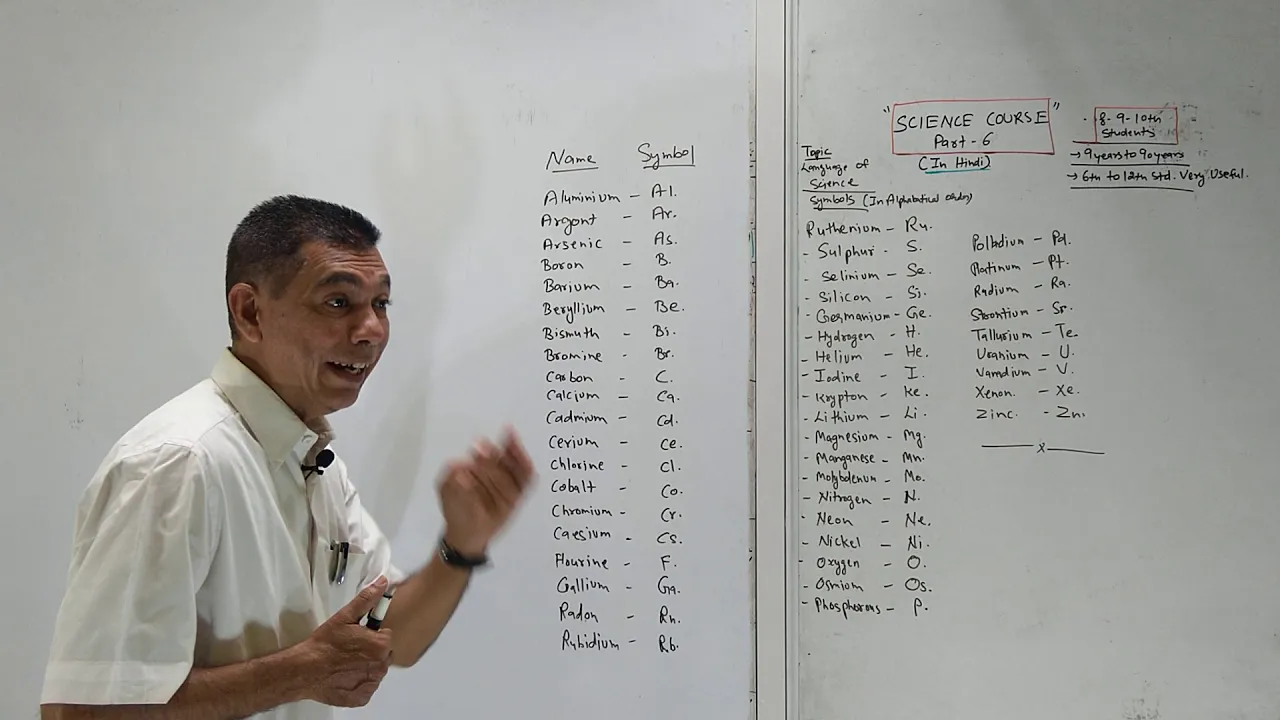 Name Symbol
Aluminium - Al.
Argont - Ar.
Arsenic - As.
Boron - B.
Barium - Ba.
Beryllium - Be.
Bismuth - Bi.
Bromine - Br.
Carbon - C.
Calcium - Ca.
Cadmium - Cd.
Cerium - Ce.
Chlorine - Cl.
Cobalt - Co.
Chromium - Cr.
Caesium - Cs.
Flourine - F.
Gallium - Ga.
Radon - Rn.
Rubidium - Rb.
"SCIENCE COURSE"
Part - 6
(In Hindi)
8-9-10th
Students
→ 9 years to 90 years
→ 6th to 12th Std. Very Useful.
Topic
Language of
Science
Symbols (In Alphabetical Order)
Ruthenium - Ru.
- Sulphur - S.
- Selinium - Se.
- Silicon - Si.
- Germanium - Ge.
- Hydrogen - H.
- Helium - He.
- Iodine - I.
- Krypton - Ke.
- Lithium - Li.
- Magnesium - Mg.
- Manganese - Mn.
- Molybdenum - Mo.
- Nitrogen - N.
- Neon - Ne.
- Nickel - Ni.
- Oxygen - O.
- Osmium - Os.
- Phosphorous - P.
Polladium - Pd.
Platinum - Pt.
Radium - Ra.
Strontium - Sr.
Tallurium - Te.
Uranium - U.
Vanadium - V.
Xenon. - Xe.
Zinc. - Zn.
x